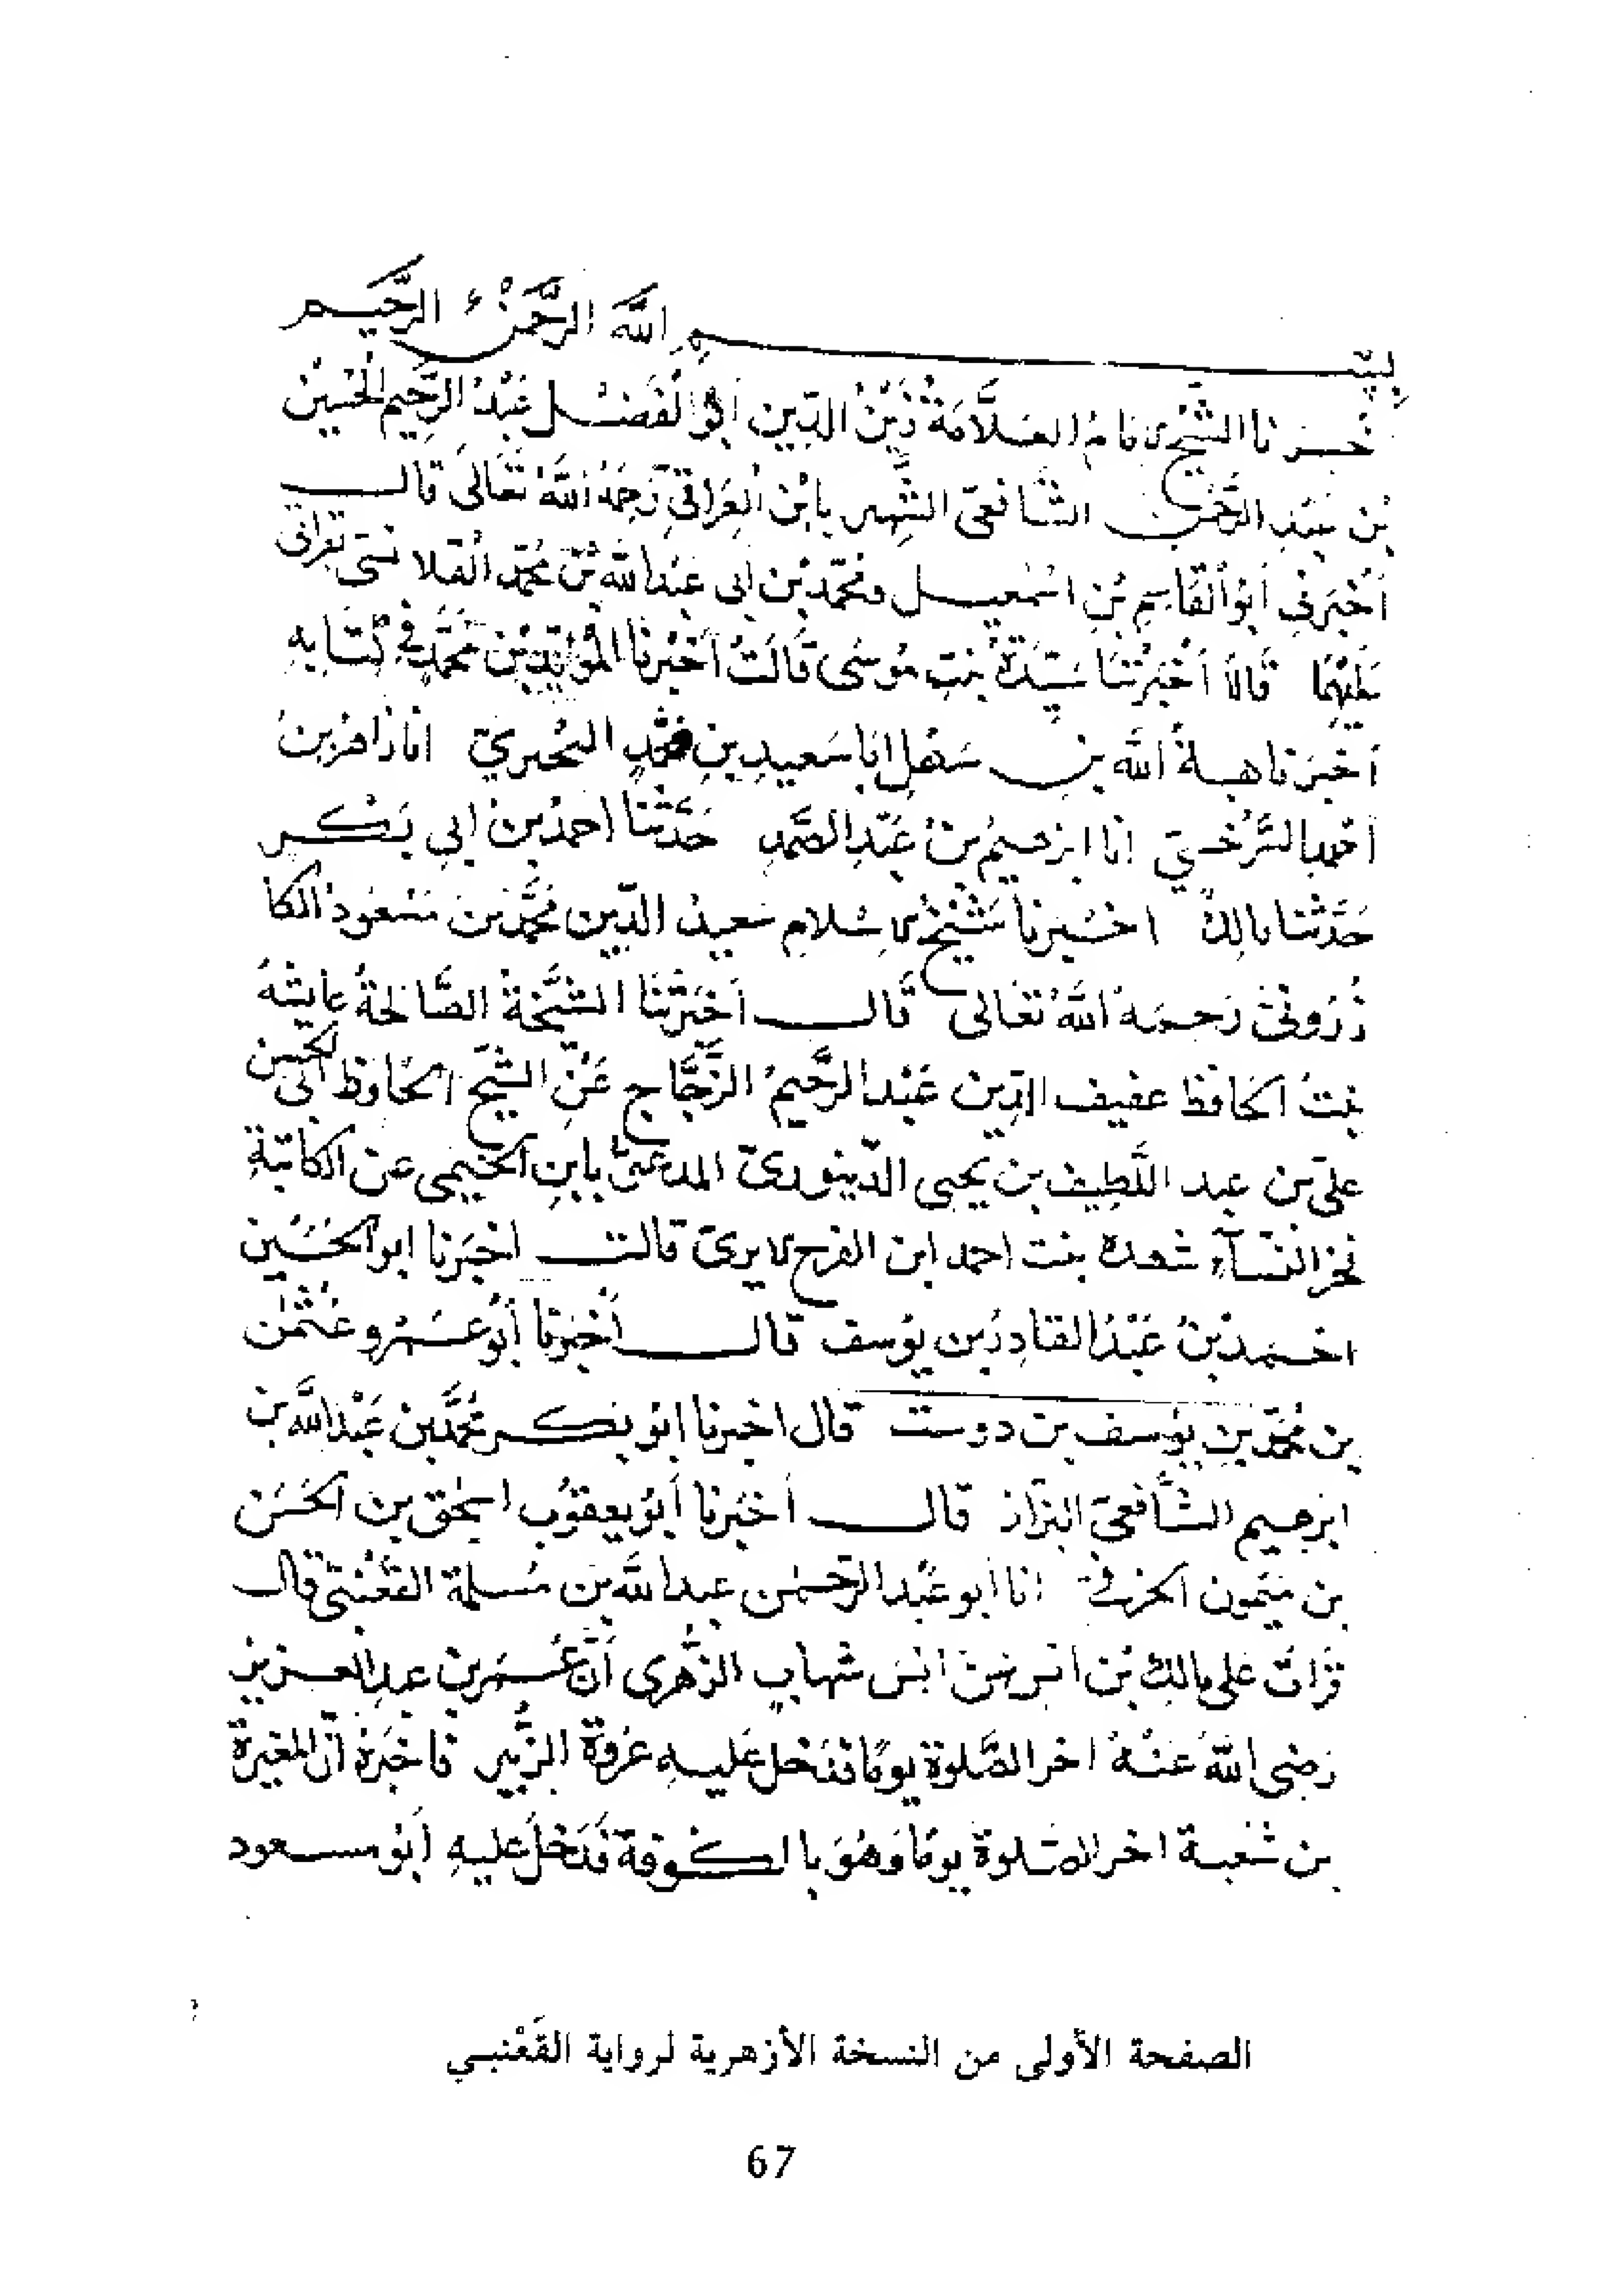 بِسْمِ اللَّهِ الرَّحْمَنِ الرَّحِيمِ
خبرنا الشيخ الامام العلَّامَة زَيْنُ الدِّين أبُو الْفَضْل عَبْدُ الرَّحِيم الحُسَين
بْن عبد الرَّحْمن الشافعىّ الشهير بابْن العِرَاقيّ رَحِمَهُ اللَّهُ تَعَالَى قال
أخْبَرَنِى أبُو الْقَاسِم بْن اسْمعيل ومحَمّد بْن أبى عبْد الله بْن مُحَمَّد القلانسى بقراتى
عَلَيْهِمَا قَالَا أخْبَرَتْنَا سَيِّدَةُ بنت مُوسَى قَالَتْ أخْبَرَنَا المُؤَيَّد بْن مُحَمَّد فى كِتَابِهِ
أخْبَرَنا هبةُ الله بن سَهْل انا سَعِيد بن مُحَمَّدٍ البحيريّ انا زَاهِر بن
أحمد السَّرَخسيّ انا ابرهيم بْن عَبْد الصَّمَد حَدَّثنا احمد بن ابي بَكْر
حَدَّثنا مالك اخبرنا شَيْخ الاسلام سعيد الدّين مُحَمَّد بن مَسْعُود الكا
زَرُونىّ رَحِمَهُ اللَّهُ تَعَالى قَال أخبَرَتْنَا الشَّيْخَةُ الصَّالحةُ عايشةُ
بنتُ الحَافظ عفيف الدين عَبْد الرَّحِيم الزَّجَّاج عَنِ الشَّيخ الحَافِظ أبى الحسن
على بن عبد اللَّطِيف بن يحيى الدّينورىّ المدعوّ بابْن الخيمى عن الكاتبة
فخر النسَآء شهدة بنت احمد ابن الفرج الابرىّ قالت اخبَرنا ابو الحُسَين
احمد بْن عَبْد القادِر بن يوسف قال أخبَرنا أبُو عَمْرو عُثْمٰن
بن مُحَمَّد بن يوسف بن دوست قال اخبرنا ابو بكر مُحَمَّد بن عَبْد الله بن
ابرهيم الشَّافعىّ البزاز قال أخبَرنا أبُو يعقوب اسحق بن الحَسَن
بن مَيْمون الحربى انا أبو عَبْد الرّحمٰن عبد الله بن مَسْلمة القَعْنَبى قال
قرات على مالك بْن انس عن ابن شهاب الزُّهرى أنّ عُمَر بن عبد العزيز
رَضِى اللهُ عَنْهُ اخر الصَّلوة يومًا فدَخل عَليهِ عُرْوَة الزبير فاخبَرَهُ أنّ المغيرة
بن شُعْبة اخر الصَّلوة يومًا وَهُوَ با الكوفة فَدَخَلَ عليهِ أبُو مسعود
الصفحة الأولى من النسخة الأزهرية لرواية القَعْنبي
67